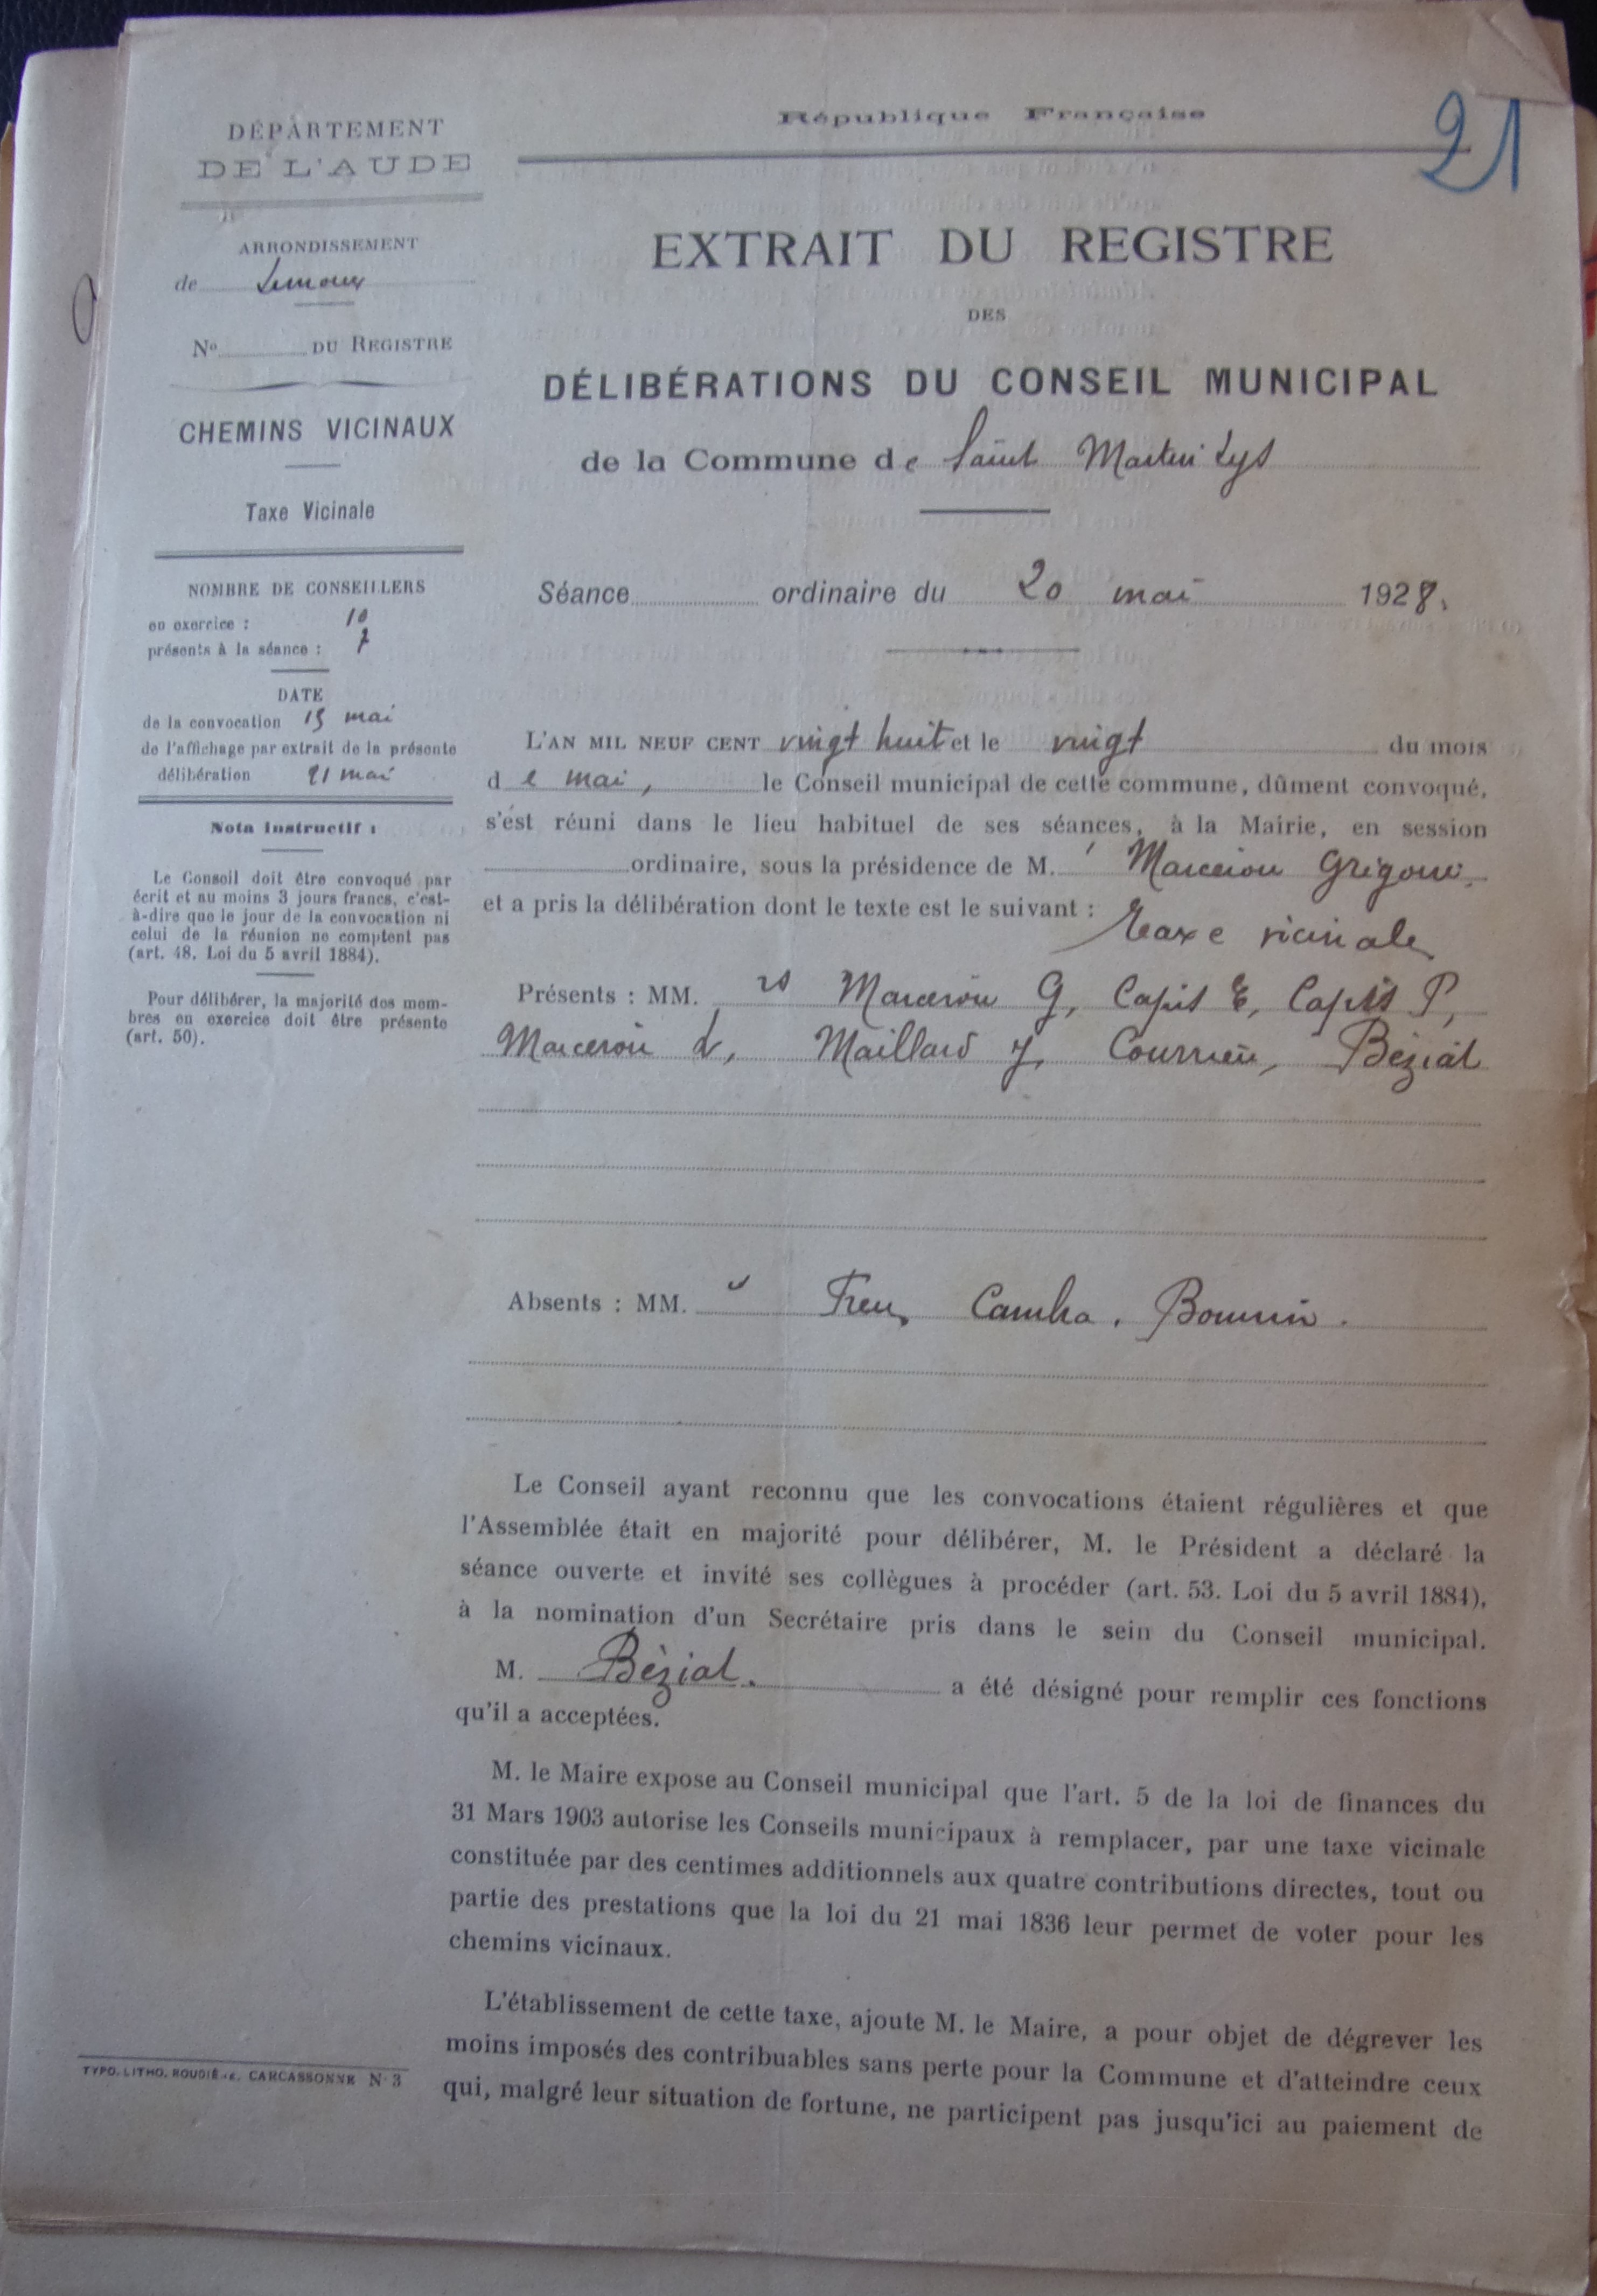 21
DÉPARTEMENT
DE L'AUDE
ARRONDISSEMENT
de Limoux
No DU REGISTRE
CHEMINS VICINAUX
Taxe Vicinale
NOMBRE DE CONSEILLERS
en exercice : 10
présents à la séance : 7
DATE
de la convocation 15 mai
de l'affichage par extrait de la présente
délibération 21 mai
Nota Instructif :
Le Conseil doit être convoqué par
écrit et au moins 3 jours francs, c'est-
à-dire que le jour de la convocation ni
celui de la réunion ne comptent pas
(art. 48. Loi du 5 avril 1884).
Pour délibérer, la majorité des mem-
bres en exercice doit être présente
(art. 50).
TYPO. LITHO. ROUDIÈRE. CARCASSONNE N° 3
République Française
EXTRAIT DU REGISTRE
DES
DÉLIBÉRATIONS DU CONSEIL MUNICIPAL
de la Commune de Saint Martin Lys
Séance ordinaire du 20 mai 1928.
L'AN MIL NEUF CENT vingt huit et le vingt du mois
de mai, le Conseil municipal de cette commune, dûment convoqué,
s'est réuni dans le lieu habituel de ses séances, à la Mairie, en session
ordinaire, sous la présidence de M. Marcerou
et a pris la délibération dont le texte est le suivant : Taxe vicinale
Présents : MM. rs Marcerou G, Capis E, Capis P,
Marcerou L, Maillard J, Courrieu, Béziat
Absents : MM. Cambra, Bonnin.
Le Conseil ayant reconnu que les convocations étaient régulières et que
l'Assemblée était en majorité pour délibérer, M. le Président a déclaré la
séance ouverte et invité ses collègues à procéder (art. 53. Loi du 5 avril 1884),
à la nomination d'un Secrétaire pris dans le sein du Conseil municipal.
M. Béziat. a été désigné pour remplir ces fonctions
qu'il a acceptées.
M. le Maire expose au Conseil municipal que l'art. 5 de la loi de finances du
31 Mars 1903 autorise les Conseils municipaux à remplacer, par une taxe vicinale
constituée par des centimes additionnels aux quatre contributions directes, tout ou
partie des prestations que la loi du 21 mai 1836 leur permet de voter pour les
chemins vicinaux.
L'établissement de cette taxe, ajoute M. le Maire, a pour objet de dégrever les
moins imposés des contribuables sans perte pour la Commune et d'atteindre ceux
qui, malgré leur situation de fortune, ne participent pas jusqu'ici au paiement de